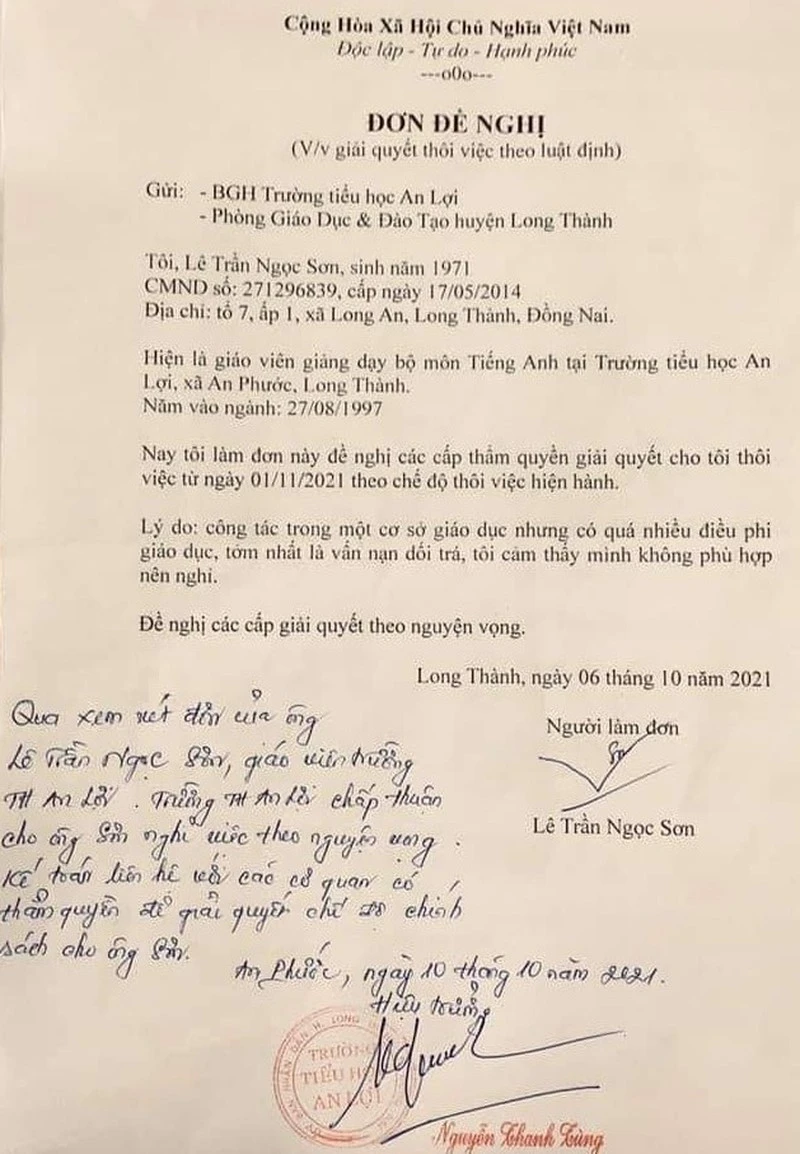 Cộng Hòa Xã Hội Chủ Nghĩa Việt Nam
Độc lập - Tự do - Hạnh phúc
---o0o---
ĐƠN ĐỀ NGHỊ
(V/v giải quyết thôi việc theo luật định)
Gửi: - BGH Trường tiểu học An Lợi
- Phòng Giáo Dục & Đào Tạo huyện Long Thành
Tôi, Lê Trần Ngọc Sơn, sinh năm 1971
CMND số: 271296839, cấp ngày 17/05/2014
Địa chỉ: tổ 7, ấp 1, xã Long An, Long Thành, Đồng Nai.
Hiện là giáo viên giảng dạy bộ môn Tiếng Anh tại Trường tiểu học An
Lợi, xã An Phước, Long Thành.
Năm vào ngành: 27/08/1997
Nay tôi làm đơn này đề nghị các cấp thẩm quyền giải quyết cho tôi thôi
việc từ ngày 01/11/2021 theo chế độ thôi việc hiện hành.
Lý do: công tác trong một cơ sở giáo dục nhưng có quá nhiều điều phi
giáo dục, tởm nhất là vấn nạn dối trá, tôi cảm thấy mình không phù hợp
nên nghỉ.
Đề nghị các cấp giải quyết theo nguyện vọng.
Long Thành, ngày 06 tháng 10 năm 2021
Người làm đơn
Sơn
Lê Trần Ngọc Sơn
Qua xem xét đơn của ông
Lê Trần Ngọc Sơn, giáo viên trường
TH An Lợi. Trường TH An Lợi chấp thuận
cho ông Sơn nghỉ việc theo nguyện vọng.
Kế toán liên hê với các cơ quan có
thẩm quyền để giải quyết chế độ chính
sách cho ông Sơn.
An Phước, ngày 10 tháng 10 năm 2021.
Hiệu trưởng
TRƯỜNG
TIỂU HỌC
AN LỢI
Nguyễn Thanh Tùng